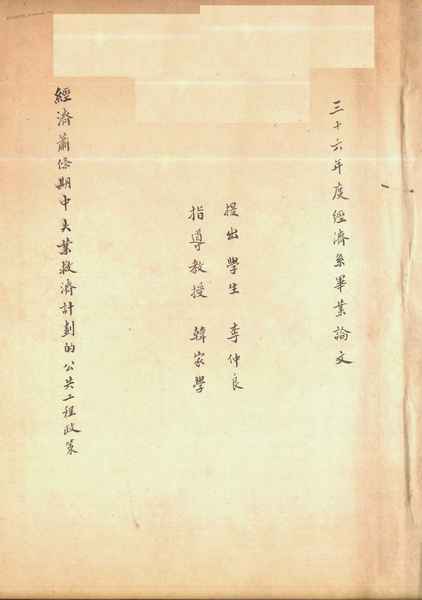 三十六年度經濟系畢業論文
提出學生 李仲良
指導教授 韓家學
經濟蕭條期中失業救濟計劃的公共工程政策